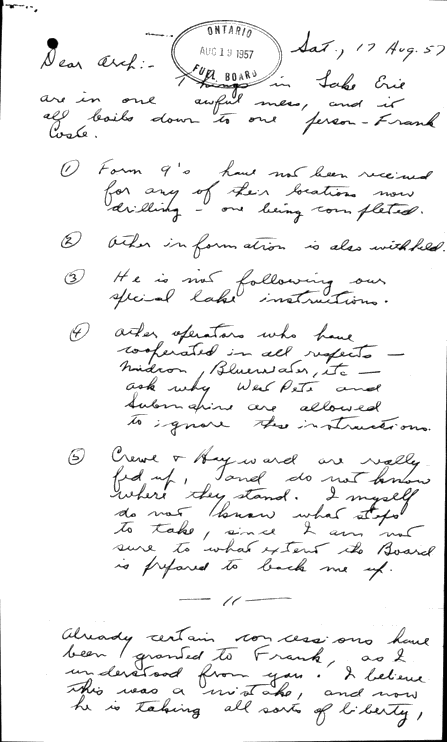 ONTARIO
AUG 19 1957
FUEL BOARD
Sat., 17 Aug. 57
Dear Arch:-
Things in Lake Erie
are in one awful mess, and it
all boils down to one person - Frank
Coste.
① Form 9's have not been received
for any of their locations now
drilling - one being completed.
② Other information is also withheld.
③ He is not following our
special lake instructions.
④ Other operators who have
cooperated in all respects -
Midcon, Bluewater, etc -
ask why West Pete and
Submarine are allowed
to ignore these instructions.
⑤ Crewe & Hayward are really
fed up, and do not know
where they stand. I myself
do not know what steps
to take, since I am not
sure to what extent the Board
is prepared to back me up.
— 11 —
Already certain concessions have
been granted to Frank, as I
understood from you. I believe
this was a mistake, and now
he is taking all sorts of liberty,